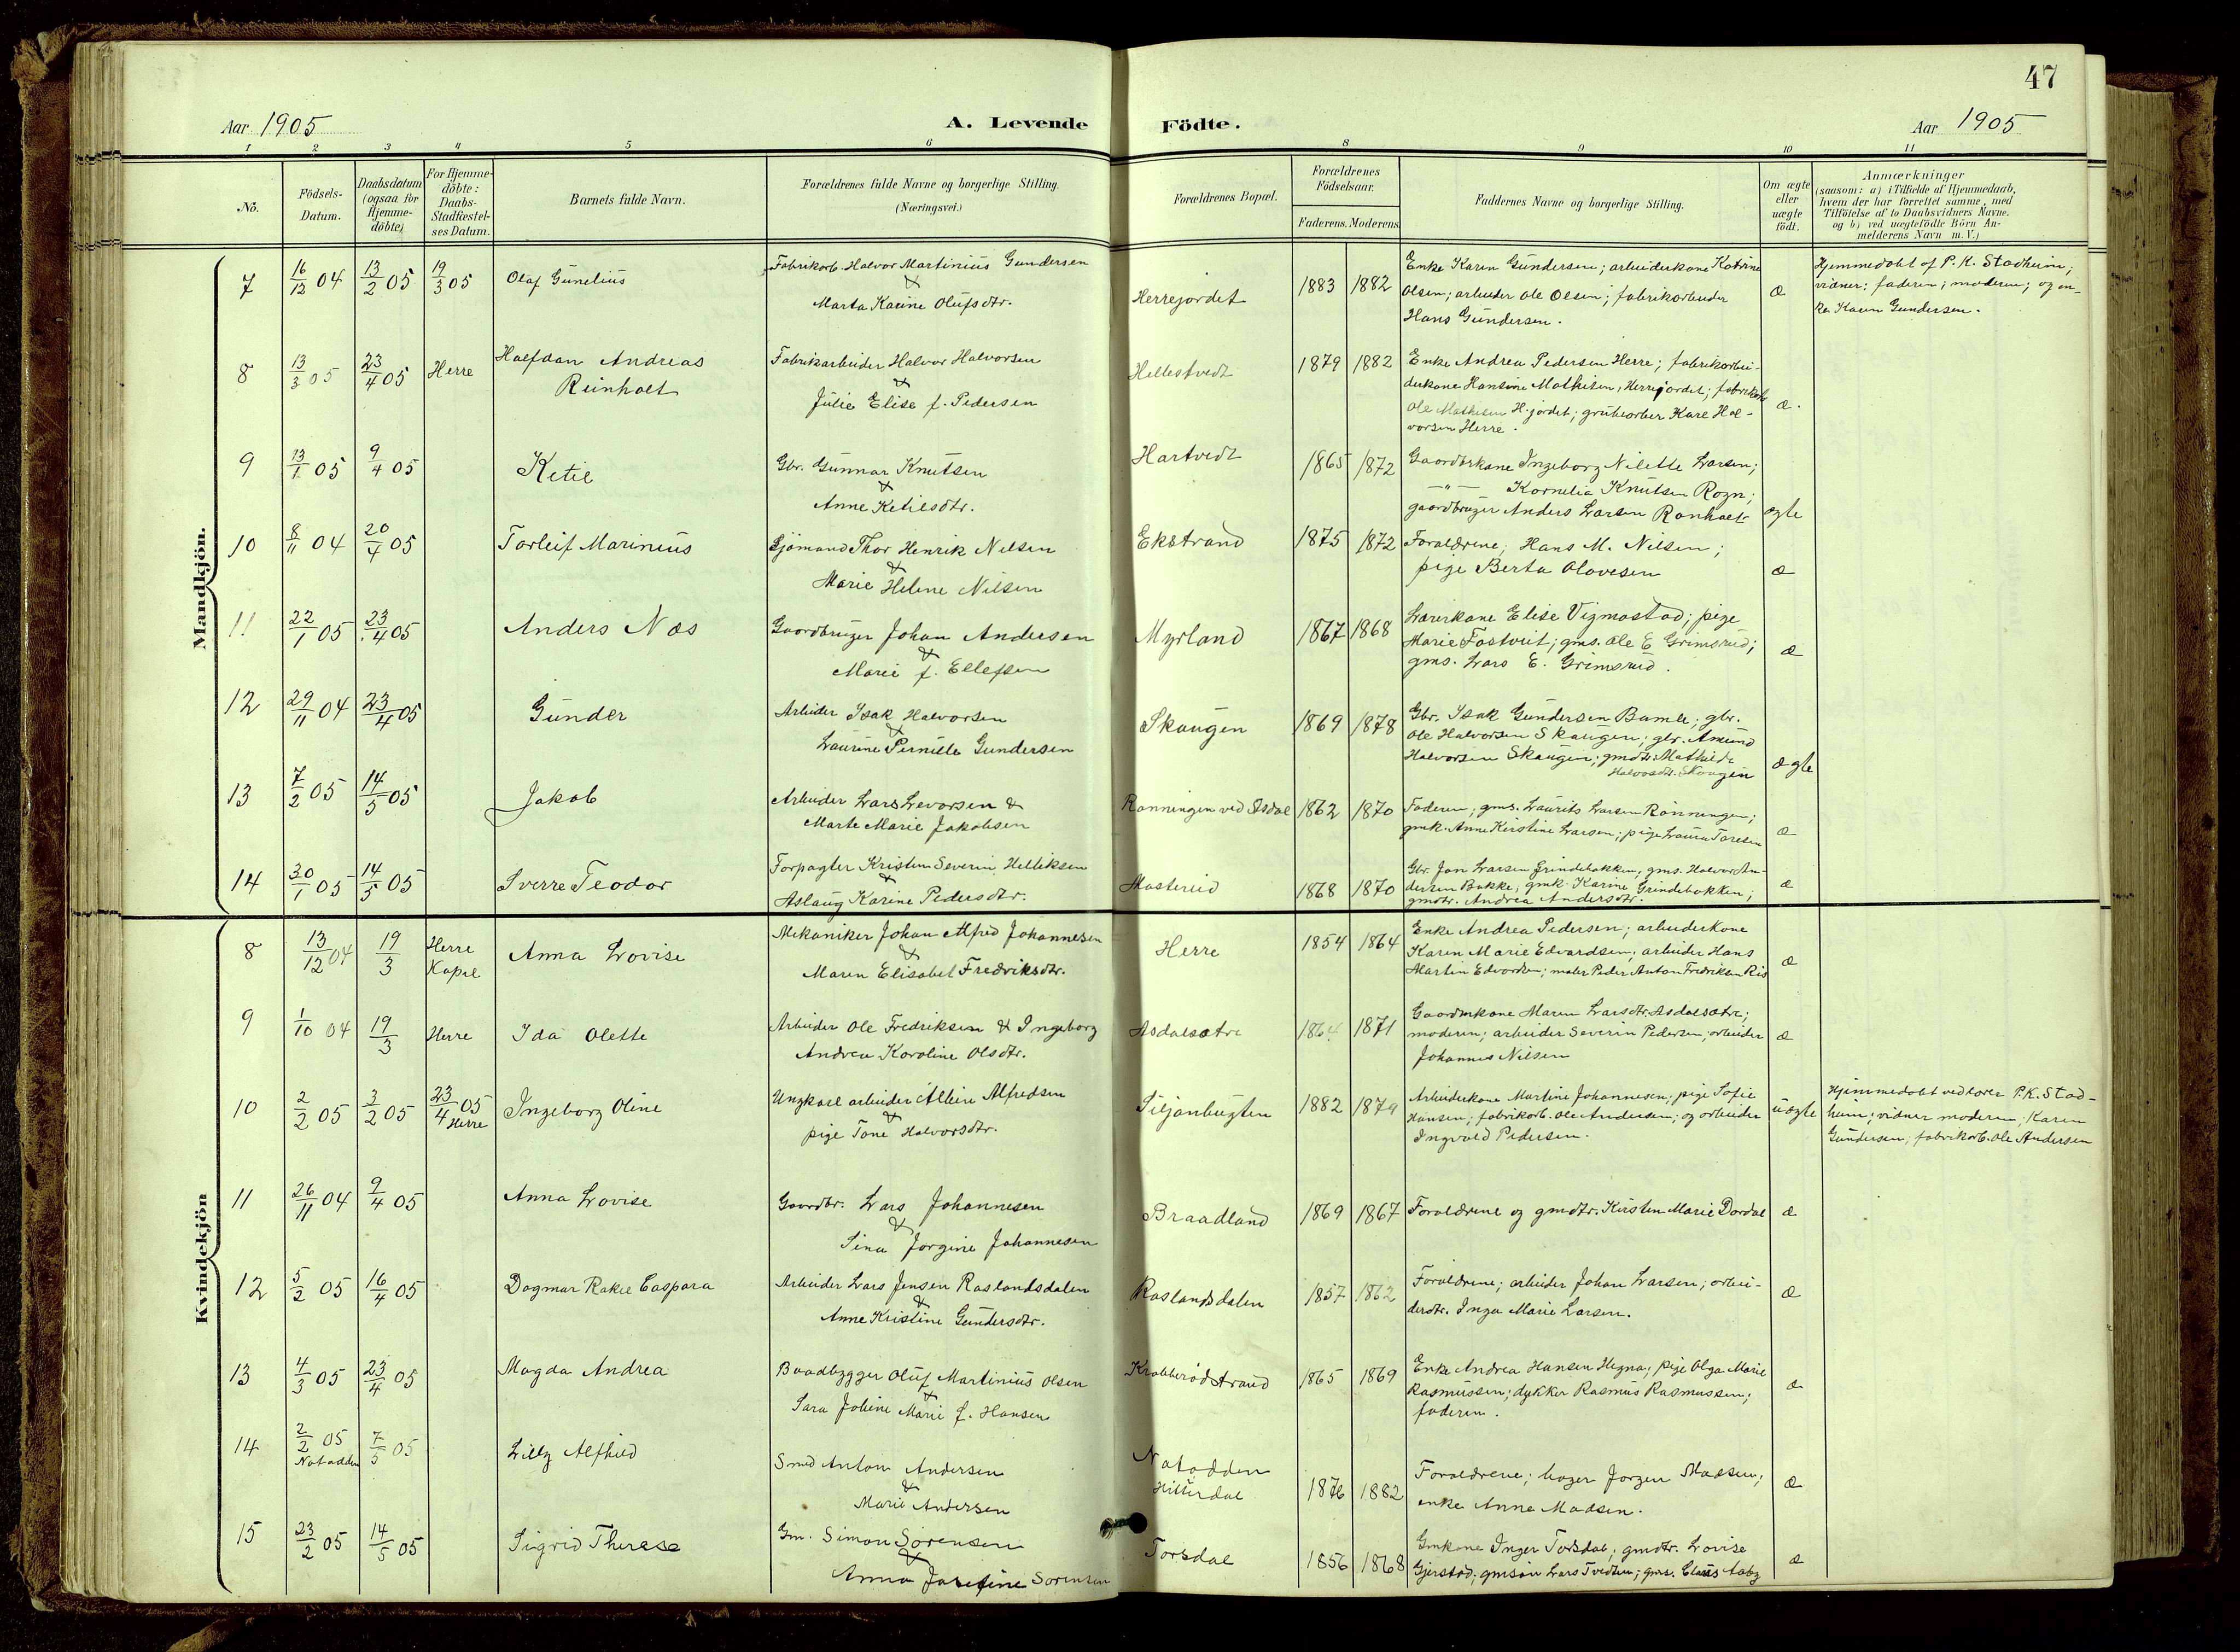 47
Aar 1905
A. Levende Födte.
Aar 1905
1 2 3 4 5 6 8 9 10 11
No.
Födsels-Datum.
Daabsdatum (ogsaa for Hjemme-döbte)
For Hjemme-döbte: Daabs-Stadfæstel-ses Datum.
Barnets fulde Navn.
Forældrenes fulde Navne og borgerlige Stilling. (Næringsvei.)
Forældrenes Bopæl.
Forældrenes Födselsaar.
Faderens. Moderens
Faddernes Navne og borgerlige Stilling.
Om ægte eller uægte födt.
Anmærkninger
(saasom: a) i Tilfælde af Hjemmedaab,
hvem der har forrettet samme, med
Tilföielse af to Daabsvidners Navne.
og b) ved uægtefödte Börn An-
melderens Navn m.V.)
Mandkjön.
7 16/12 04 13/2 05 19/3 05 Olaf Gunelius
Fabrikarb. Halvor Martinius Gundersen
&
Marta Karine Olufsdtr.
Herrejordet 1883 1882
Enke Karen Gundersen; arbeiderkone Katrine
Olsen; arbeider Ole Olsen; fabrikarbeider
Hans Gundersen.
æ
Hjemmedøbt af P. K. Stadheim;
vidner: faderen; moderen; og en-
ke Karen Gundersen.
8 13/3 05 23/4 05 Herre Halfdan Andreas
Reinholt
Fabrikarbeider Halvor Halvorsen
&
Julie Elise f. Pedersen
Hellestvedt 1879 1882
Enke Andrea Pedersen Herre; fabrikarbei-
derkone Hansine Mathisen, Herrejordet; fabrikarb
Ole Mathisen H.jordet; grubearber Karl Hal-
vorsen Herre.
æ.
9 13/1 05 9/4 05 Ketil
Gbr. Gunnar Knutsen
&
Anne Ketilsdtr.
Hartvedt 1865 1872
Gaardbrkone Ingeborg Nilette Larsen;
—"— Kornelia Knutsen Rogn;
gaardbruger Anders Larsen Rønholt
ægte
10 8/11 04 20/4 05 Torleif Marinius
Sjømand Thor Henrik Nilsen
&
Marie Helene Nilsen
Ekstrand 1875 1872
Forældrene; Hans M. Nilsen;
pige Berta Olavesen
æ
11 22/1 05 23/4 05 Anders Næs
Gaardbruger Johan Andersen
&
Marie f. Ellefsen
Myrland 1867 1868
Lærerkone Elise Vigmostad; pige
Marie Fostveit; gms. Ole E Grimsrud;
gms. Lars E. Grimsrud.
æ
12 29/11 04 23/4 05 Gunder
Arbeider Isak Halvorsen
&
Laurine Pernille Gundersen
Skaugen 1869 1878
Gbr. Isak Gundersen Bamle; gbr.
Ole Halvorsen Skaugen; gbr. Amund
Halvorsen Skaugen; gmdtr. Mathilde
Halvorsdtr. Skaugen
ægte
13 7/2 05 14/5 05 Jakob
Arbeider Lars Levorsen &
Marte Marie Jakobsen
Rønningen ved Asdal 1862 1870
Faderen; gms. Laurits Larsen Rønningen;
gmk. Anne Kirstine Larsen; pige Laura Taresen
æ
14 30/1 05 14/5 05 Sverre Teodor
Forpagter Kristen Severin Helliksen
&
Aslaug Karine Pedersdtr.
1868 1870
Gbr. Jon Larsen Grindebakken, gms. Halvor An-
dersen Bakke; gmk. Karine Grindebakken;
gmdtr. Andrea Andersdtr.
æ
Kvindekjön
8 13/12 04 19/3 Herre
Kapel
Anna Lovise
Mekaniker Johan Alfred Johannesen
&
Maren Elisabet Fredriksdtr.
Herre 1854 1864
Enke Andrea Pedersen; arbeiderkone
Karen Marie Edvardsen; arbeider Hans
Martin Edvardsen; maler Peder Anton Fredriksen Ris
æ
9 1/10 04 19/3 Herre Ida Olette
Arbeider Ole Fredriksen & Ingeborg
Andrea Karoline Olsdtr.
Asdalsætre 1864 1871
Gaardmkone Maren Larsdtr. Asdalsætre;
moderen; arbeider Severin Pedersen; arbeider
Johannes Nilsen
æ
10 2/2 05 3/2 05 23/4 05
Herre
Ingeborg Oline
Ungkarl arbeider Albin Alfredsen
&
pige Tone Halvorsdtr.
Siljanbugten 1882 1879
Arbeiderkone Martine Johannesen; pige Sofie
Hansen; fabrikarb. Ole Andersen; og arbeider
Ingvald Pedersen.
uægte
Hjemmedøbt ved lærer P. K. Stad-
heim; vidner moderen, Karen
Gundersen; fabrikarb. Ole Andersen
11 26/11 04 9/4 05 Anna Lovise
Gaardbr. Lars Johannesen
&
Sina Jørgine Johannesen
Braadland 1869 1867
Forældrene og gmdtr. Kirsten Marie Dordal
æ
12 5/2 05 16/4 05 Dagmar Rakel Caspara
Arbeider Lars Jensen Raslandsdalen
&
Anne Kristine Gundersdtr.
Raslandsdalen 1857 1862
Forældrene; arbeider Johan Larsen; arbei-
derdtr. Inga Marie Larsen.
æ
13 4/3 05 23/4 05 Magda Andrea
Baadbygger Oluf Martinius Olsen
&
Sara Joline Marie f. Hansen
Krabberødstrand 1865 1869
Enke Andrea Hansen Hegna; pige Olga Marie
Rasmussen; dykker Rasmus Rasmussen;
faderen.
æ
14 2/2 05
Notodden
7/5 05 Lilly Alfhild
Smed Anton Andersen
&
Marie Andersen
Notodden
Hitterdal
1876 1882
Forældrene; bager Jørgen Madsen;
enke Anne Madsen.
æ
15 23/2 05 14/5 05 Sigrid Therese
Gm. Simon Sørensen
&
Anna Josefine Sørensen
Torsdal 1856 1868
Gmkone Inger Torsdal; gmdtr. Lovise
Gjerstad; gmsøn Lars Tvedten; gms. Claus Aaby
æ